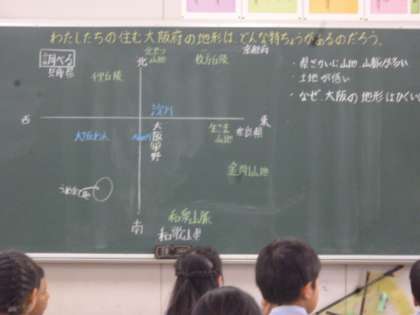 わたしたちの住む大阪府の地形は、どんな特ちょうがあるのだろう。
調べる
兵庫県
北
山地
京都府
枚方丘陵
・県ざかいに山地、山脈が多い
・土地が低い
・なぜ、大阪の地形はひくい
淀川
西
東
大阪わん
大阪平野
生こま山地
奈良県
金剛山地
南
和泉山脈
和歌山県